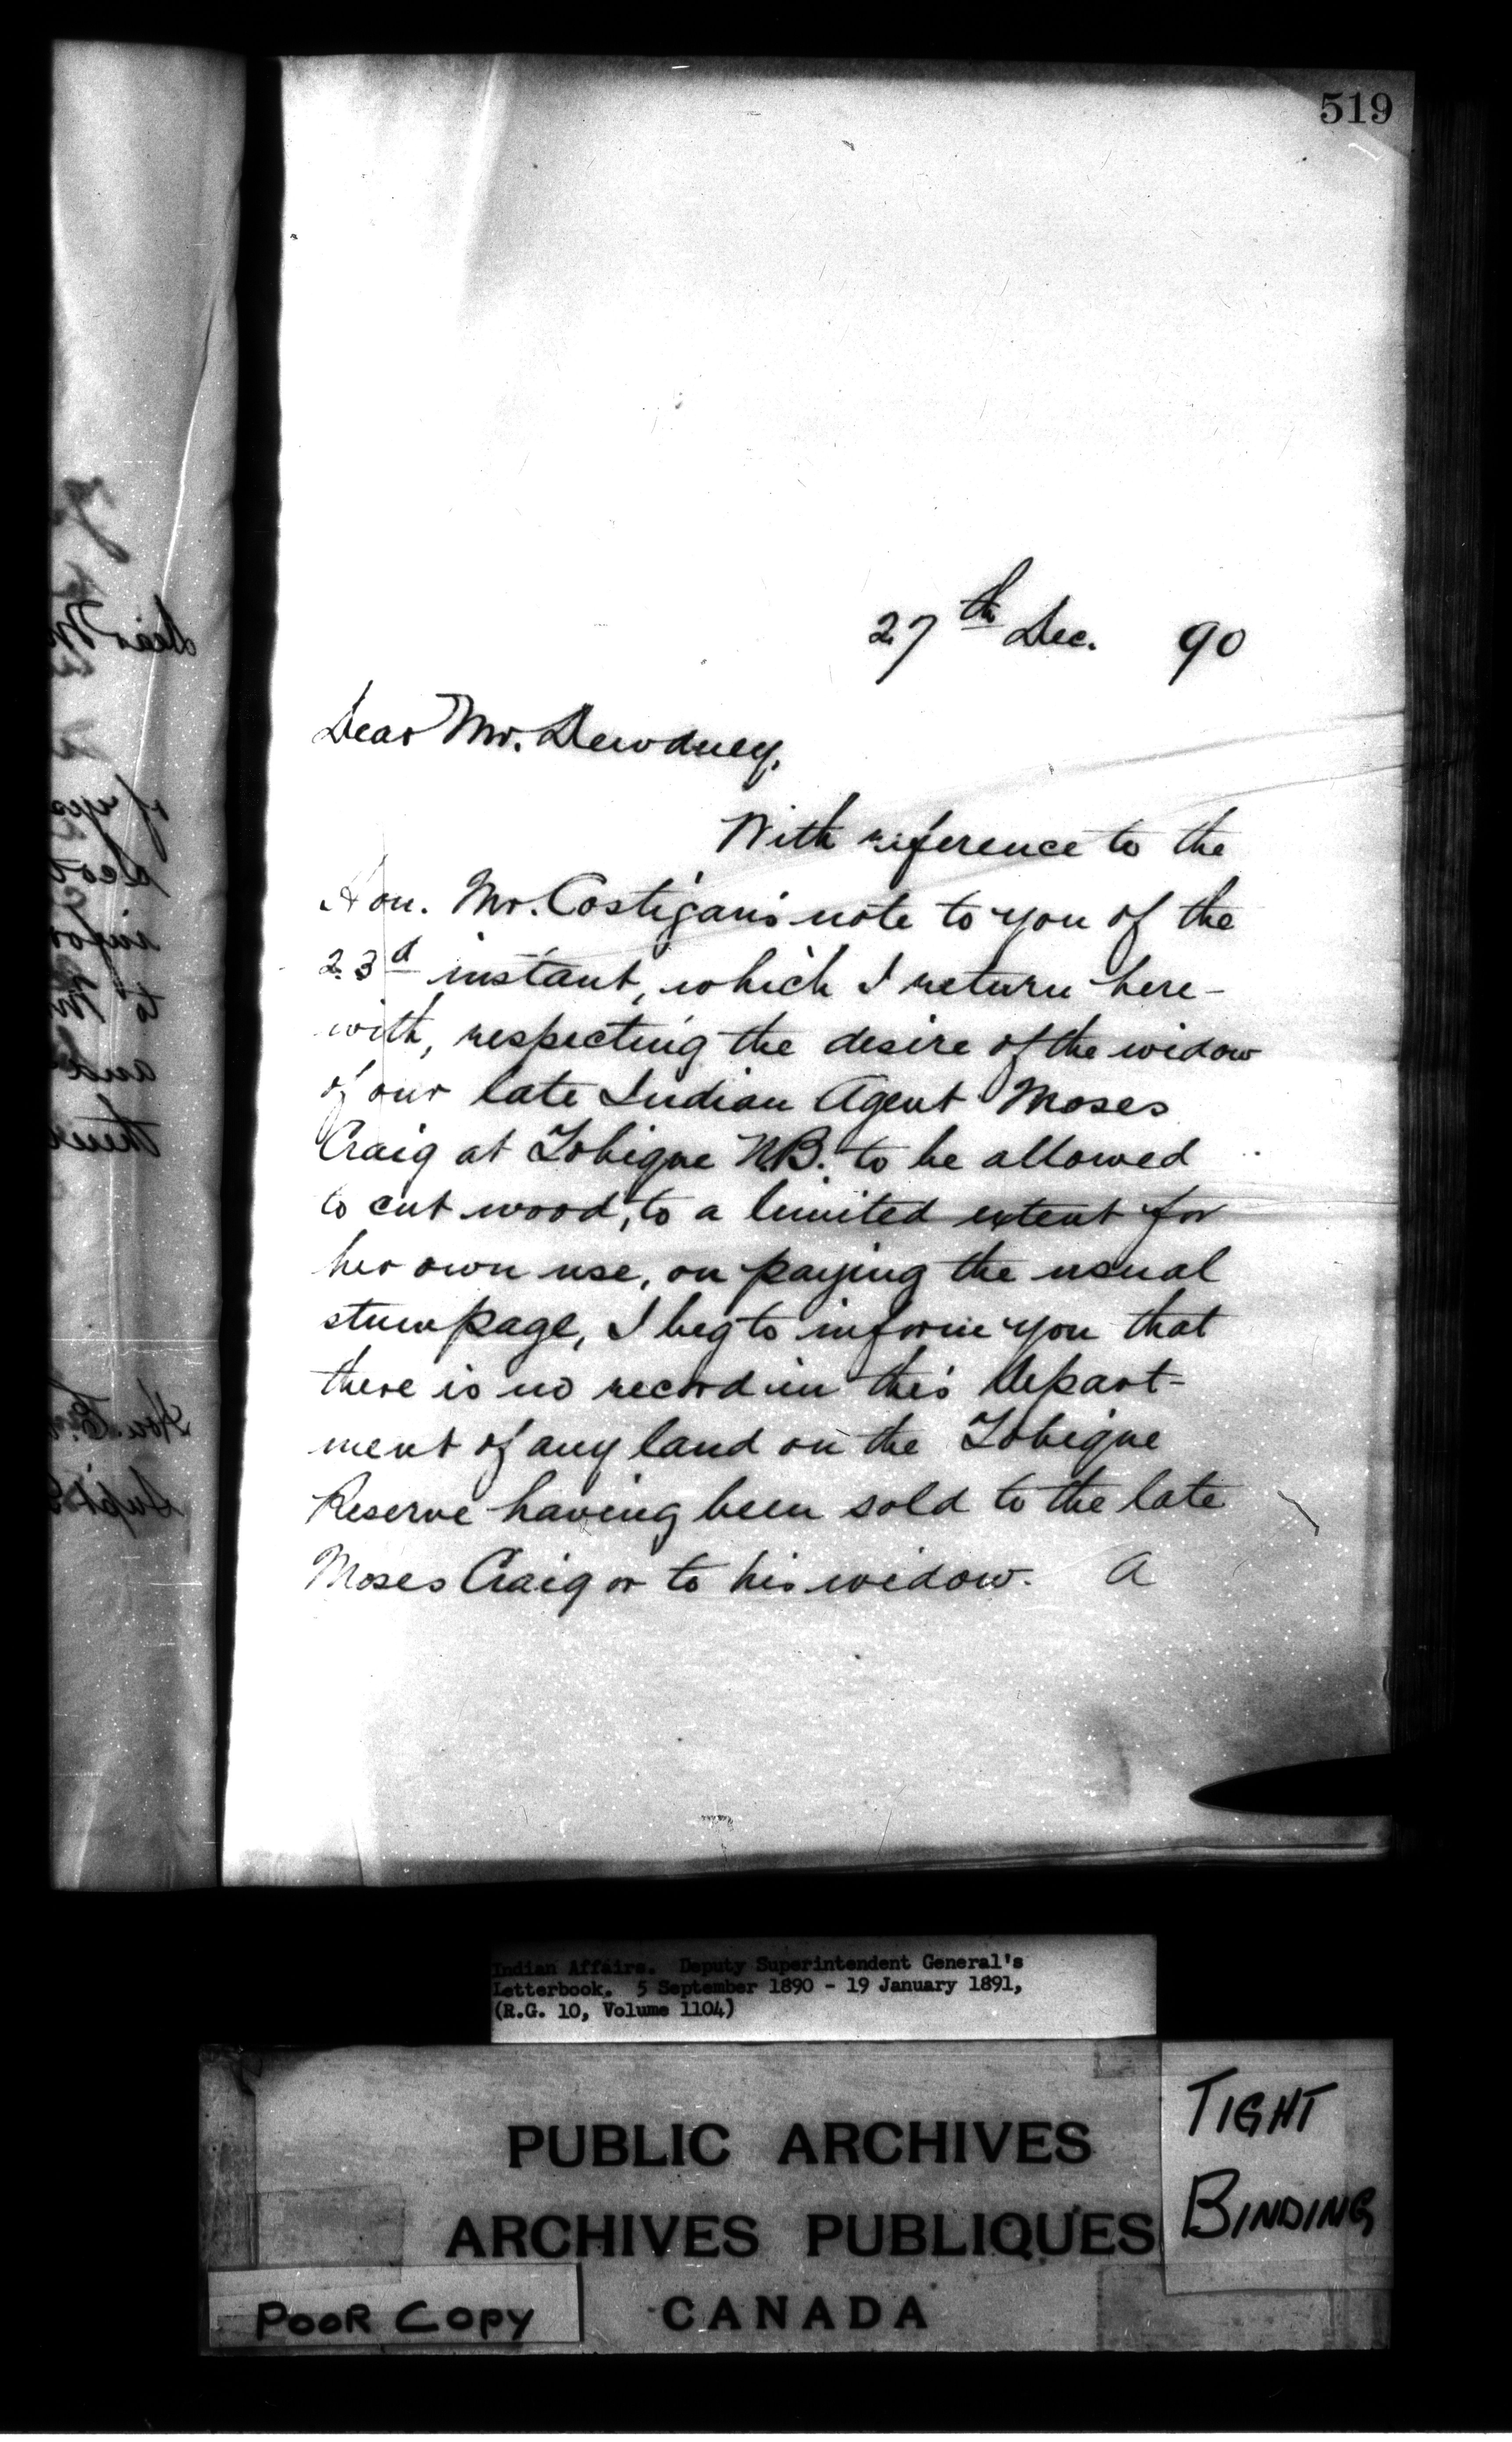 519
27th Dec. 90
Dear Mr. Dewdney,
With reference to the
Hon. Mr. Costigan's note to you of the
23d instant, which I return here-
with, respecting the desire of the widow
of our late Indian Agent Moses
Craig at Tobique N.B. to be allowed
to cut wood, to a limited extent for
her own use, on paying the usual
stumpage, I beg to inform you that
there is no record in this Depart-
ment of any land on the Tobique
Reserve having been sold to the late
Moses Craig or to his widow. A
Indian Affairs. Deputy Superintendent General's
Letterbook. 5 September 1890 - 19 January 1891,
(R.G. 10, Volume 1104)
PUBLIC ARCHIVES
ARCHIVES PUBLIQUES
CANADA
TIGHT
BINDING
POOR COPY